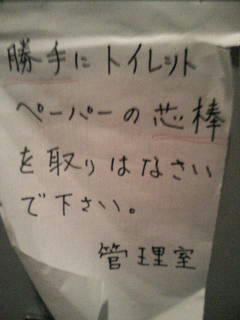 勝手にトイレット
ペーパーの芯棒
を取りはなさい
で下さい。
管理室